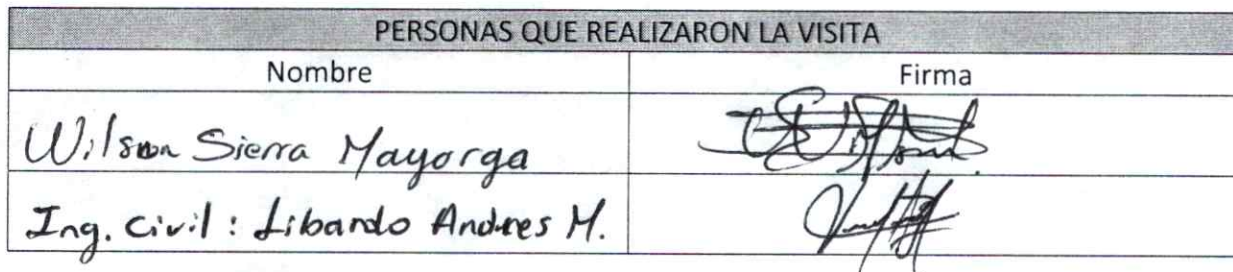 PERSONAS QUE REALIZARON LA VISITA
Nombre Firma
Wilson Sierra Mayorga
Ing. Civil: Libardo Andres M.